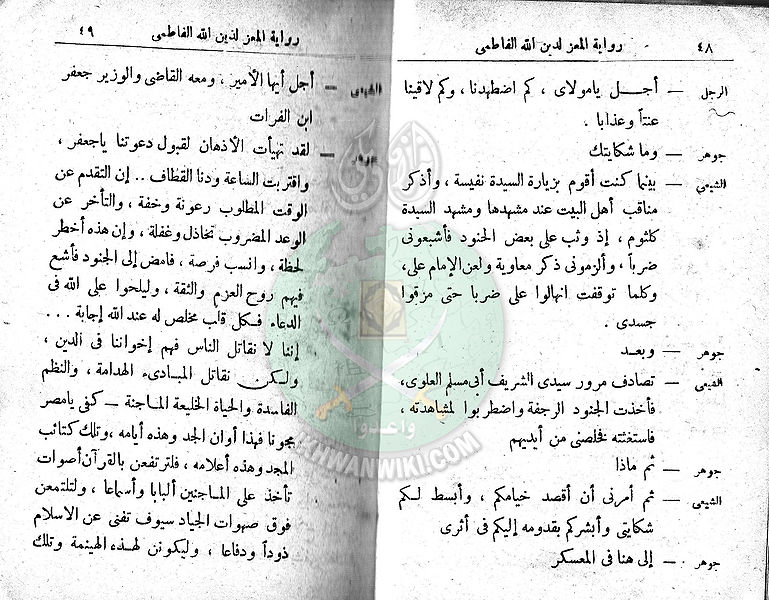 ٤٨
رواية المعز لدين الله الفاطمى
الرجل — أجـــل يامولاى ، كم اضطهدنا ، وكم لاقينا
عنتاً وعذابا .
جوهر — وما شكايتك
الشيعى — بينما كنت أقوم بزيارة السيدة نفيسة ، وأذكر
مناقب أهل البيت عند مشهدها ومشهد السيدة
كلثوم ، إذ وثب على بعض الجنود فأشبعونى
ضرباً ، وألزمونى ذكر معاوية ولعن الإمام على،
وكلما توقفت انهالوا على ضربا حتى مزقوا
جسدى .
جوهر — وبعد
الشيعى — تصادف مرور سيدى الشريف أبى مسلم العلوى،
فأخذت الجنود الرجفة واضطربوا لمشاهدته ،
فاستغثته فخلصنى من أيديهم
جوهر — ثم ماذا
الشيعى — ثم أمرنى أن أقصد خيامكم ، وأبسط لكم
شكايتى وأبشركم بقدومه إليكم فى أثرى
جوهر — إلى هنا فى المعسكر
رواية المعز لدين الله الفاطمى
٤٩
الشيعى — أجل أيها الأمير ، ومعه القاضى والوزير جعفر
ابن الفرات
جوهر — لقد تهيأت الأذهان لقبول دعوتنا ياجعفر ،
واقتربت الساعة ودنا القطاف .. إن التقدم عن
الوقت المطلوب رعونة وخفة ، والتأخر عن
الوعد المضروب تخاذل وغفلة ، وإن هذه أخطر
لحظة ، وانسب فرصة ، فامض إلى الجنود فأشع
فيهم روح العزم والثقة ، وليلحوا على الله فى
الدعاء فكل قلب مخلص له عند الله إجابة ...
إننا لا نقاتل الناس فهم إخواننا فى الدين ،
ولكن نقاتل المبادىء الهدامة ، والنظم
الفاسدة والحياة الخليعة الماجنة — كفى يامصر
مجونا فهذا أوان الجد وهذه أيامه ، وتلك كتائب
المجد وهذه أعلامه ، فلترتفعن بالقرآن أصوات
تأخذ على الماجنين ألبابا وأسماعا ، ولتلتمعن
فوق صهوات الجياد سيوف تفنى عن الاسلام
ذوداً ودفاعا ، وليكونن لهذه الهينمة وتلك
واعدوا
IKHWANWIKI.COM